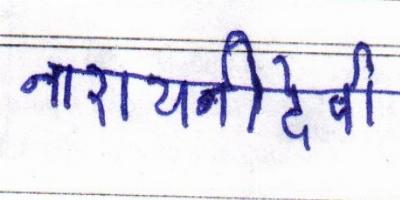 नारायनी देवी